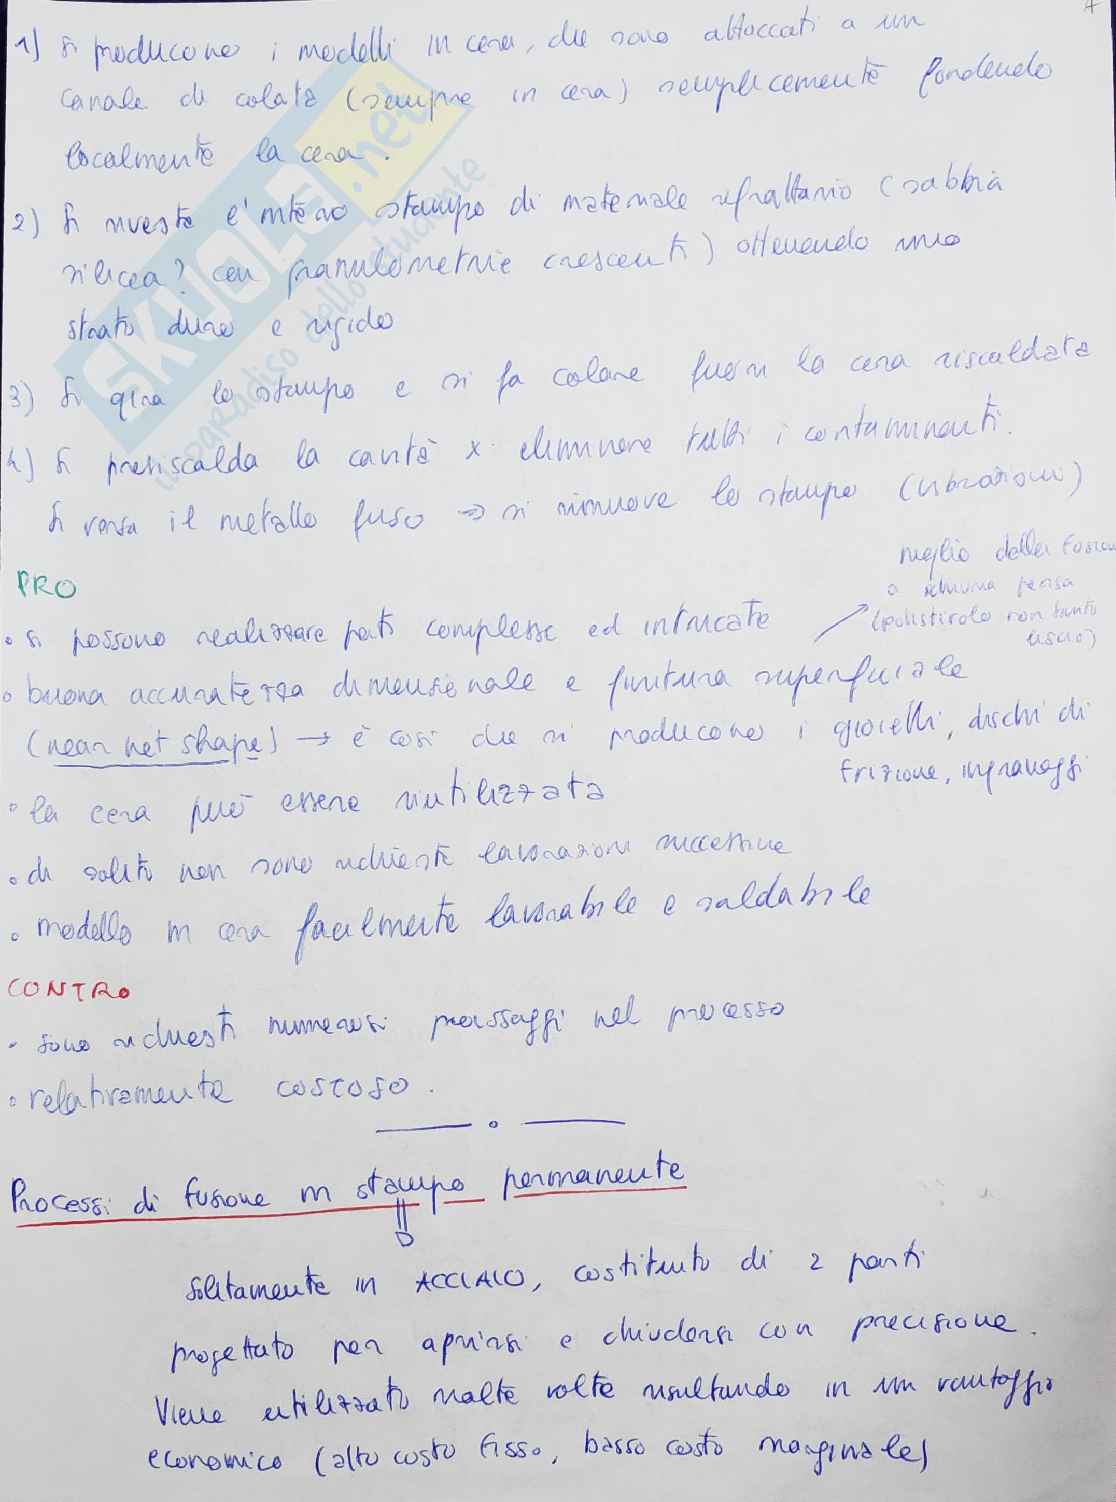 1) Si producono i modelli in cera, che sono attaccati a un
canale di colata (sempre in cera) semplicemente fondendo
localmente la cera.
2) Si riveste l'intero stampo di materiale refrattario (sabbia
silicea? con granulometrie crescenti) ottenendo uno
strato duro e rigido
3) Si gira lo stampo e si fa colare fuori la cera riscaldata
4) Si preriscalda la cavità x eliminare tutti i contaminanti.
Si versa il metallo fuso → si rimuove lo stampo (vibrazioni)
PRO
• si possono realizzare parti complesse ed intricate
meglio della fusione
a schiuma persa
(polistirolo non tanto
liscio)
• buona accuratezza dimensionale e finitura superficiale
(near net shape) → è così che si producono i gioielli, dischi di
frizione, ingranaggi
• la cera può essere riutilizzata
• di solito non sono richieste lavorazioni successive
• modello in cera facilmente lavorabile e saldabile
CONTRO
• sono richiesti numerosi passaggi nel processo
• relativamente costoso.
Processi di fusione in stampo permanente
Solitamente in ACCIAIO, costituito di 2 parti
progettato per aprirsi e chiudersi con precisione.
Viene utilizzato molte volte risultando in un vantaggio
economico (alto costo fisso, basso costo marginale)
SKUOLA.net
il paradiso dello studente